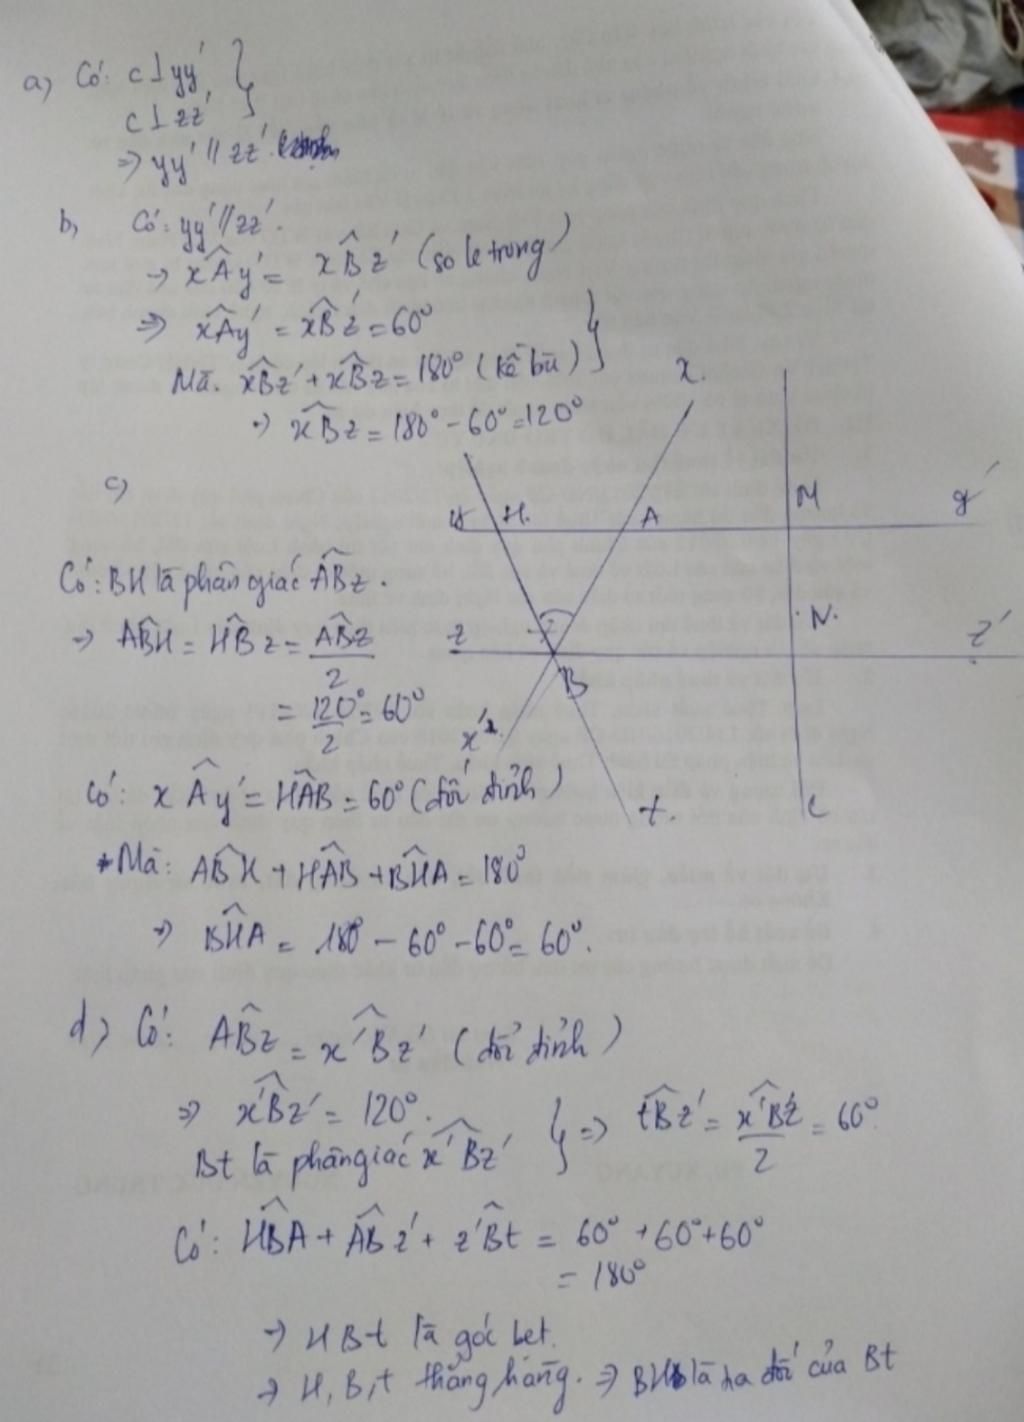 a) Có: c⊥yy'
c⊥zz'
⇒ yy' // zz'.
b, Có: yy' // zz'.
→ xÂy' = xB̂z' (so le trong)
⇒ xÂy' = xB̂z' = 60°
Mà. xB̂z' + xB̂z = 180° (kề bù)
⇒ xB̂z = 180° - 60° = 120°
c)
x.
y H. A M y'
N.
z B z'
x' t. c
Có: BH là phân giác AB̂z.
→ AB̂H = HB̂z = AB̂z/2
= 120°/2 = 60°
Có: xÂy' = HÂB = 60° (đối đỉnh)
Mà: AB̂H + HÂB + BĤA = 180°
⇒ BĤA = 180° - 60° - 60° = 60°.
d) Có: AB̂z = x'B̂z' (đối đỉnh)
⇒ x'B̂z' = 120°.
Bt là phân giác x'B̂z' } ⇒ tB̂z' = x'B̂z'/2 = 60°
Có: HB̂A + AB̂z' + z'B̂t = 60° + 60° + 60°
= 180°
→ HBt là góc bẹt.
→ H, B, t thẳng hàng. ⇒ BH là tia đối của Bt